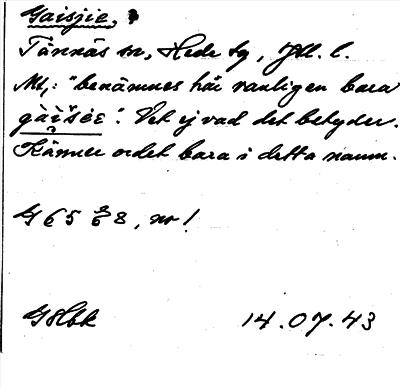 Gaisjie,
Tännäs sn, Hede tg, Jtl. l.
Mt,: "benämnes här vanligen bara
gàìšėɛ". Vet ej vad det betyder.
Känner ordet bara i detta namn.
G 65 8, nr 1
14.07.43